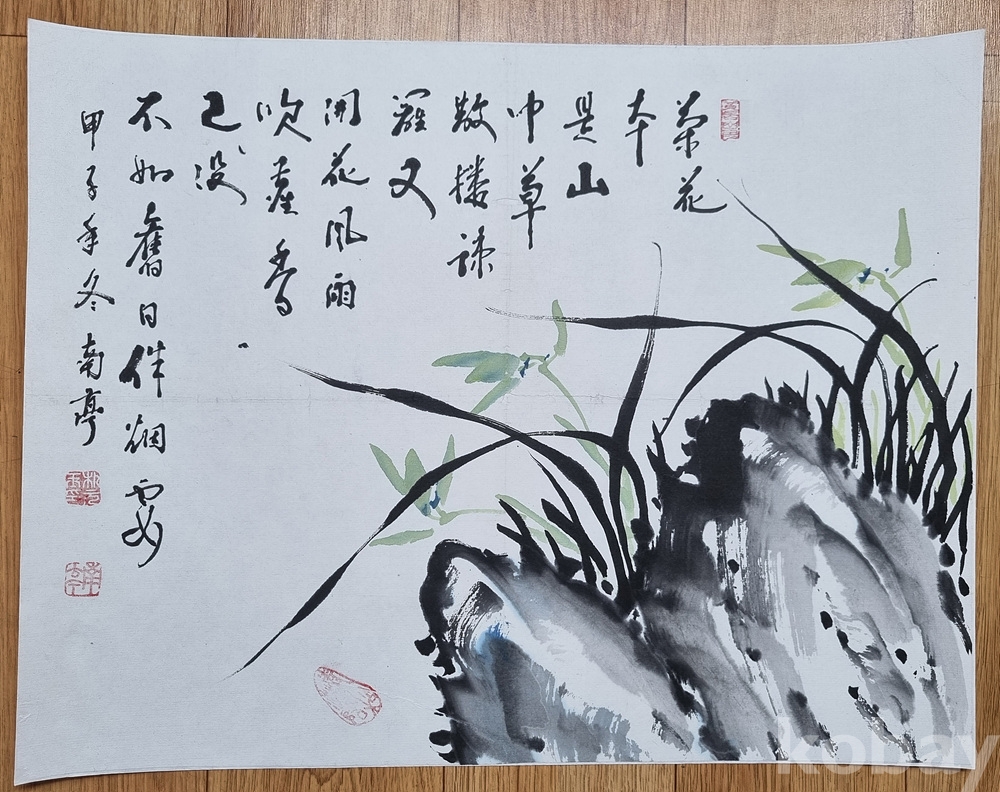 蘭花
本
是山
中草
散疎
罷又
開花風雨
吹香
已沒
不如舊日伴烟霞
甲子年冬南亭
kobay